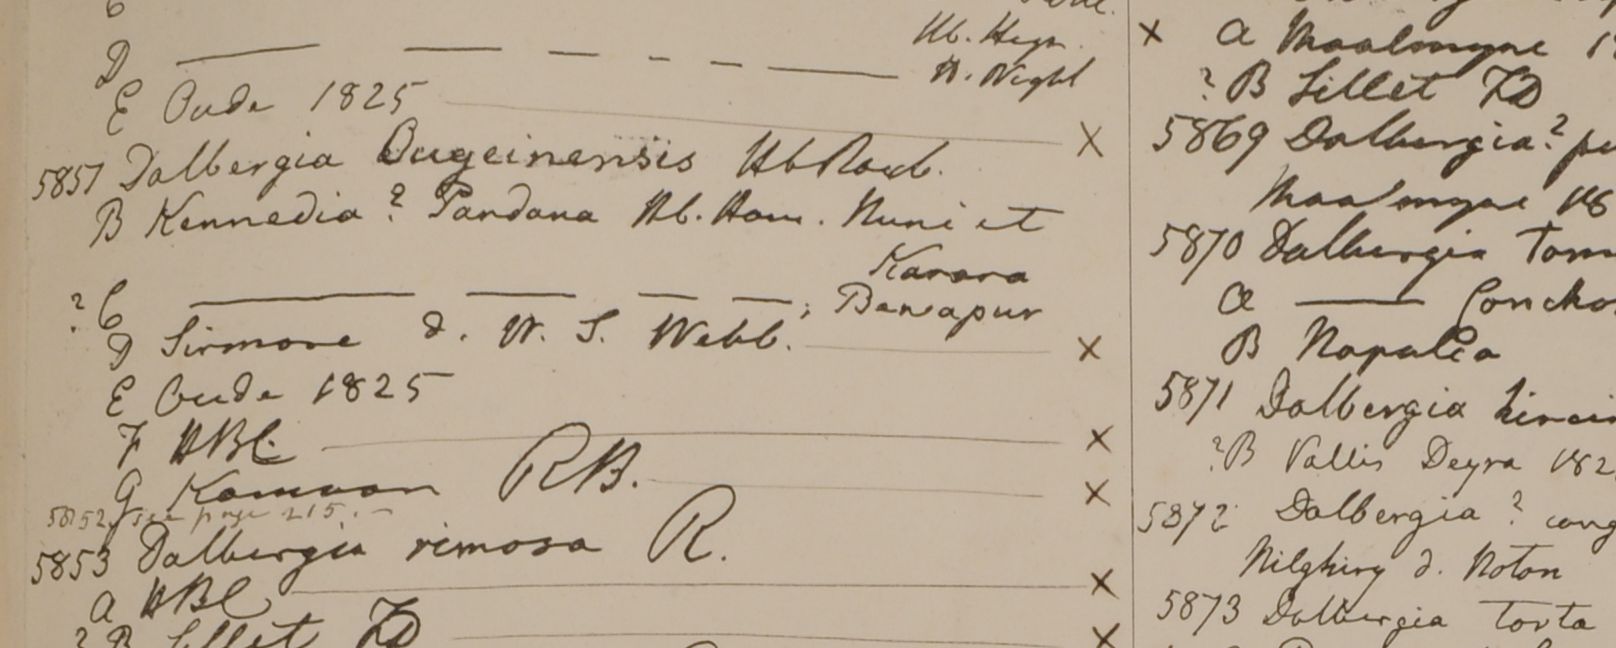 D — — — — — — Hb. Heyn.
H. Wight
E Oude 1825 X
5851 Dalbergia Ougeinensis Hb Roxb.
B Kennedia? Pandana Hb. Ham. Nuni et
Karara
? C — — — —; Benapur
D Sirmore d. W. S. Webb. X
E Oude 1825
F HBC X
G Kamaon RB. X
5852 see page 215. —
5853 Dalbergia rimosa R.
a HBC X
? B Sillet FD X
X a Moalmyne
? B Sillet FD
5869 Dalbergia?
Moalmyne
5870 Dalbergia
a —
B Napalia
5871 Dalbergia
? B Vallis Deyra 182
5872 Dalbergia? cong
Nilghiry d. Noton
5873 Dalbergia torta